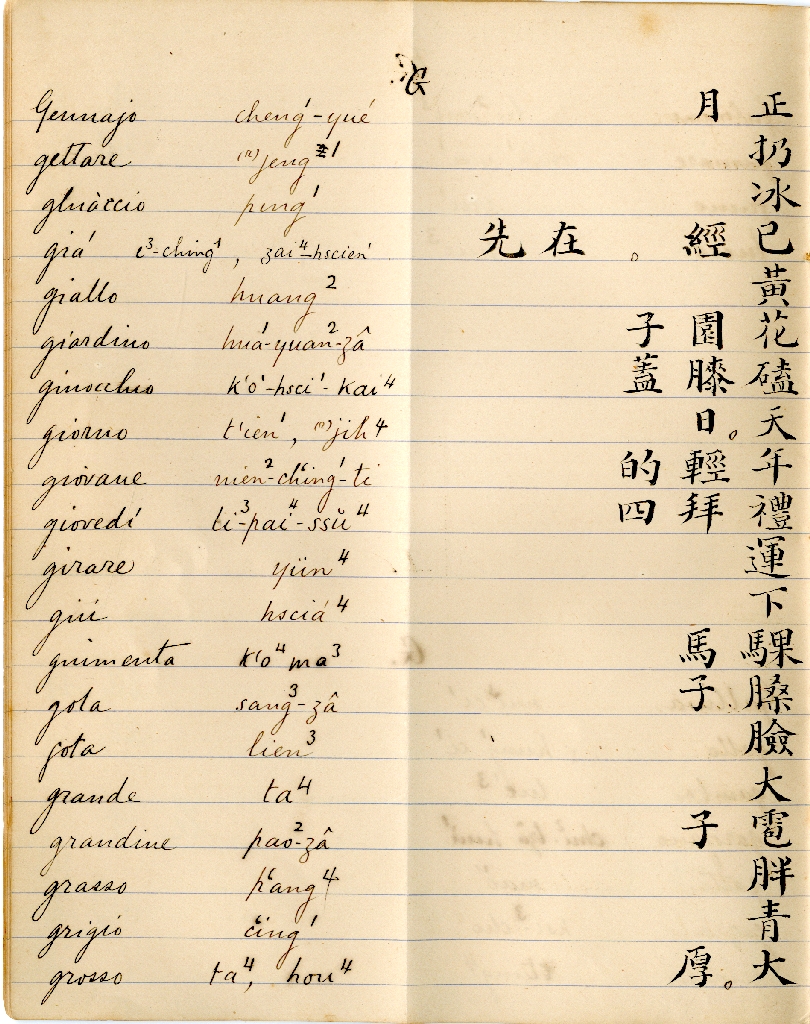 G.
Gennajo cheng¹-yué 正月
gettare ⁽ⁿ⁾jeng¹ 扔
ghiàccio ping¹ 冰
giá i³-ching¹, zai⁴-hscien¹ 已經。在先
giallo huang² 黃
giardino huá-yuan²-zâ 花園子
ginocchio k'o¹-hsci¹-kai⁴ 磕膝蓋
giorno t'ien¹, ⁽ⁿ⁾jih⁴ 天。日
giòvane nien²-ch'ing¹-ti 年輕的
giovedí li³-pai⁴-ssŭ⁴ 禮拜四
girare yün⁴ 運
giú hsciá⁴ 下
giumenta k'o⁴ ma³ 騍馬
gola sang³-zâ 膆子
gota lien³ 臉
grande ta⁴ 大
grandine pao²-zâ 雹子
grasso p'ang⁴ 胖
grigio c'ing¹ 青
grosso ta⁴, hou⁴ 大。厚